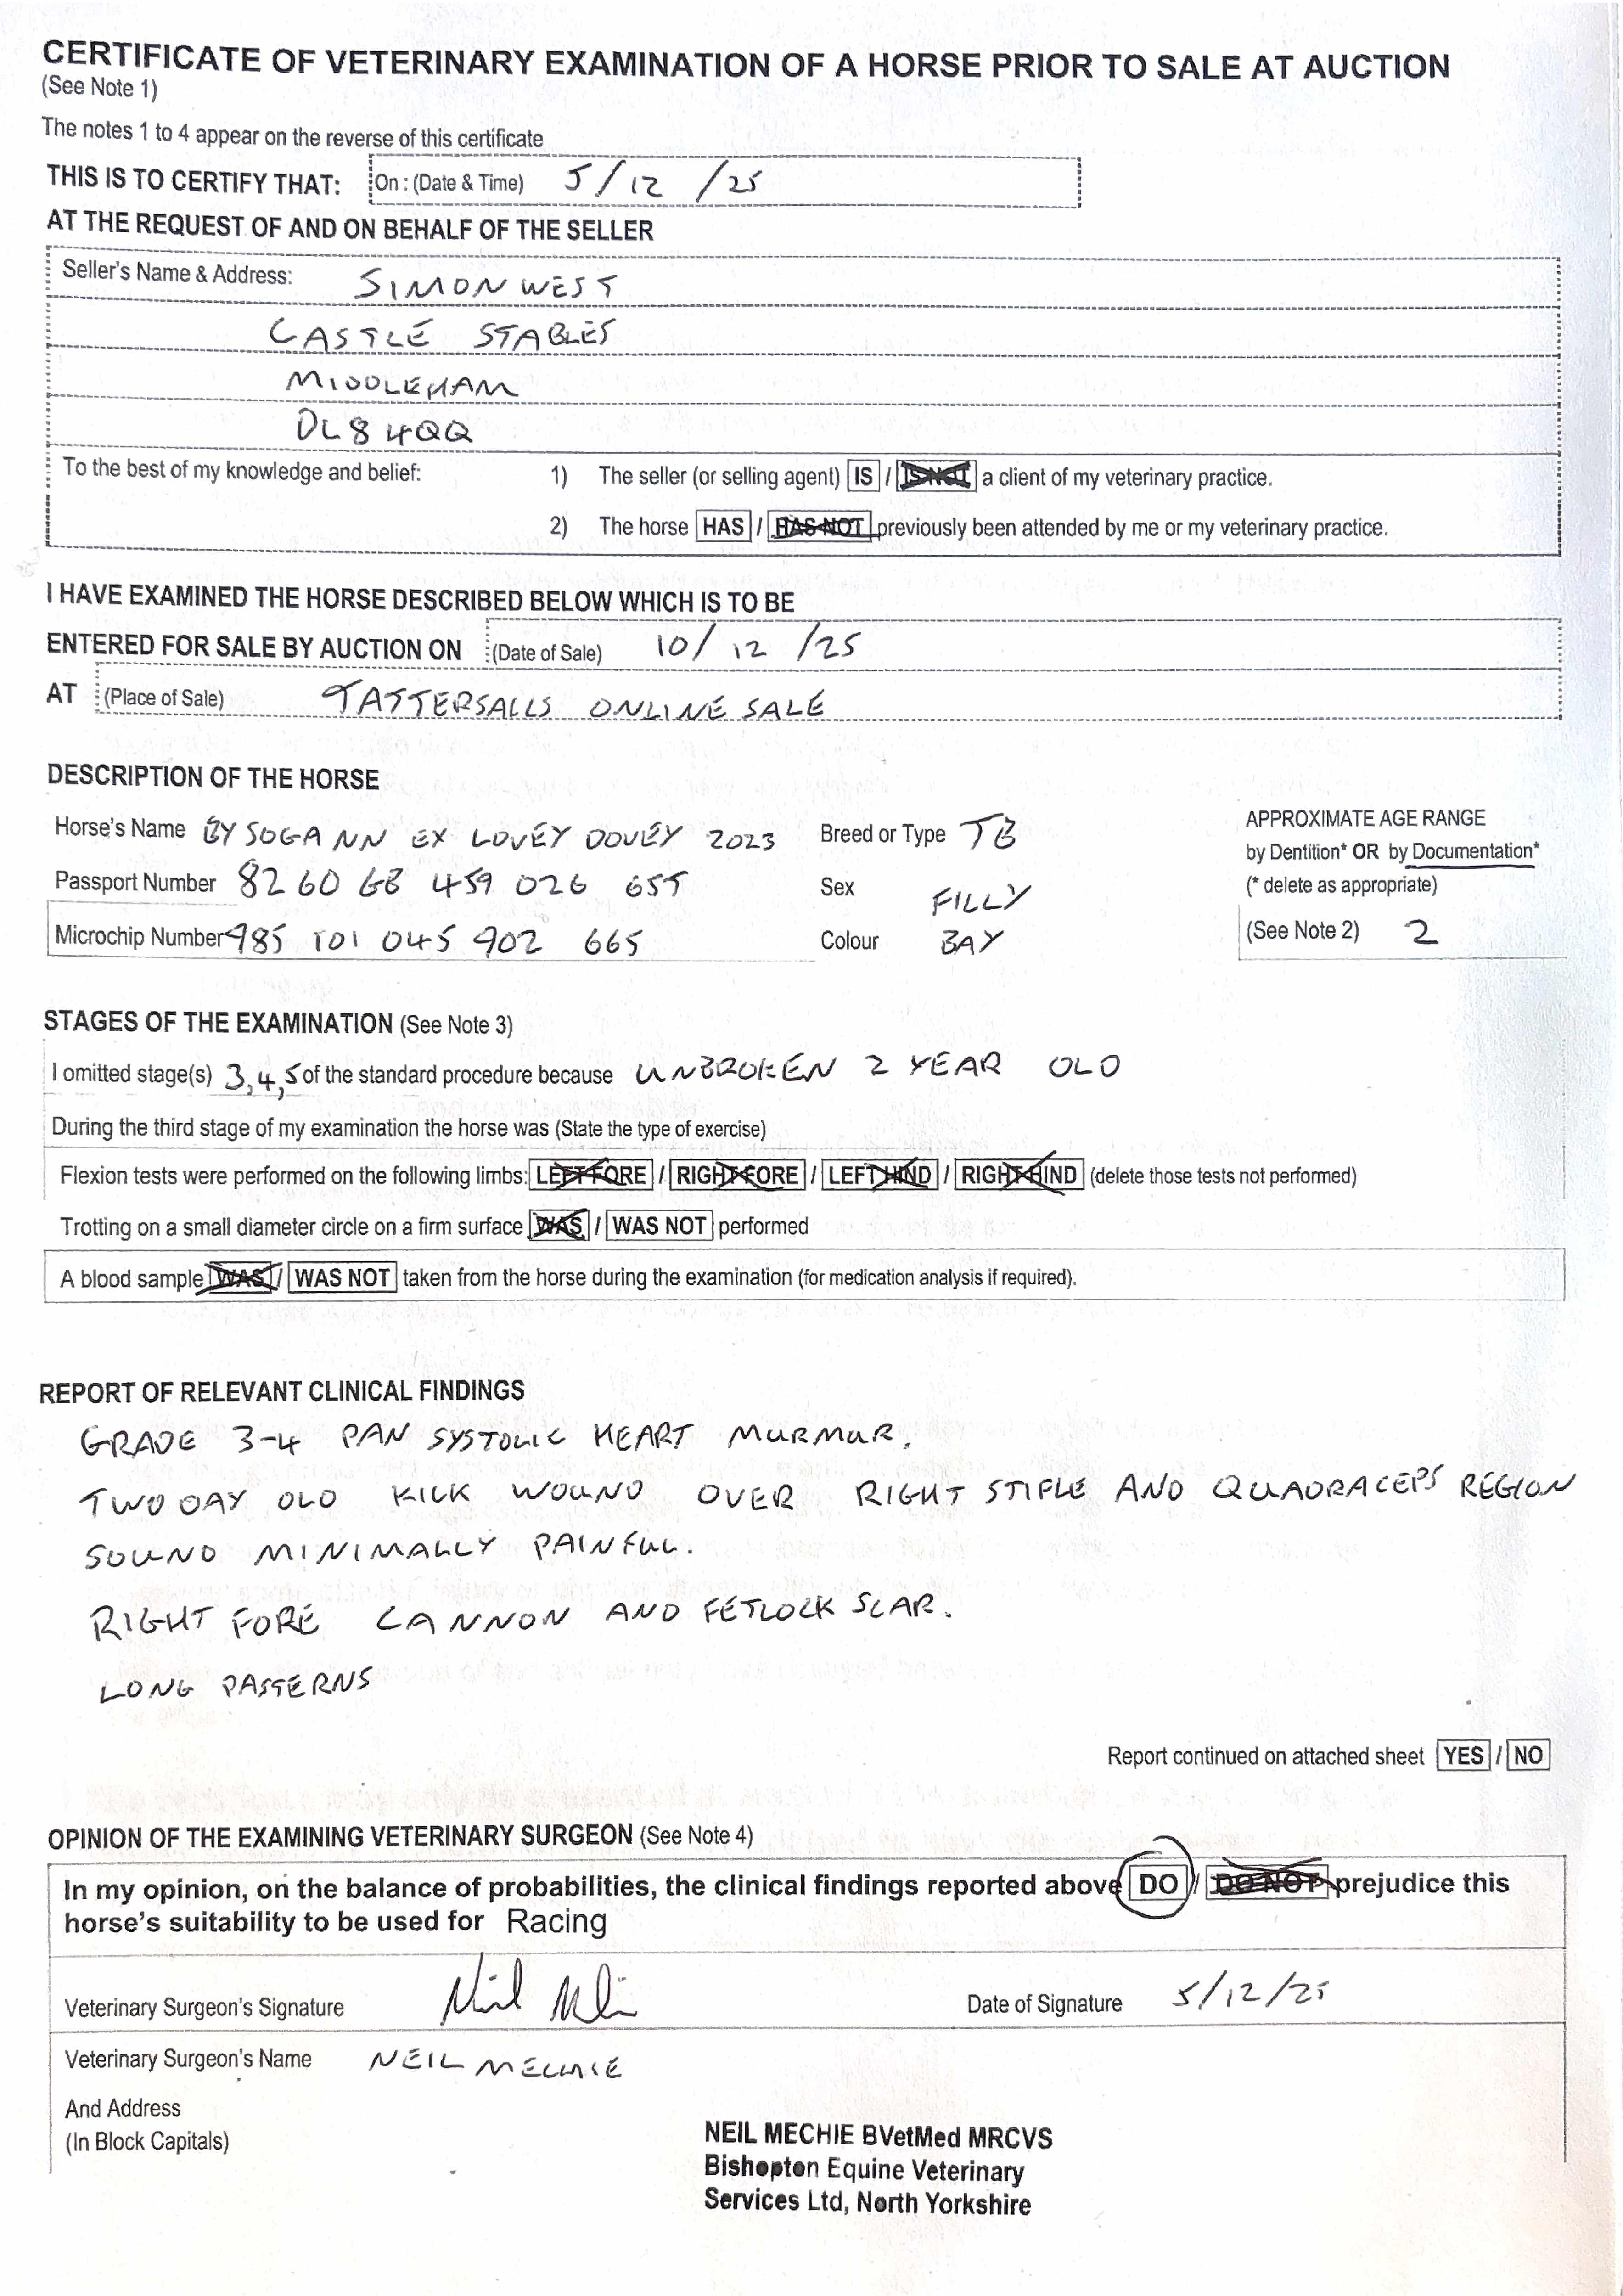 CERTIFICATE OF VETERINARY EXAMINATION OF A HORSE PRIOR TO SALE AT AUCTION
(See Note 1)
The notes 1 to 4 appear on the reverse of this certificate
THIS IS TO CERTIFY THAT: On : (Date & Time) 5/12/25
AT THE REQUEST OF AND ON BEHALF OF THE SELLER
Seller's Name & Address: SIMON WEST
CASTLE STABLES
MIDDLEHAM
DL8 4QQ
To the best of my knowledge and belief: 1) The seller (or selling agent) IS / IS NOT a client of my veterinary practice.
2) The horse HAS / HAS NOT previously been attended by me or my veterinary practice.
I HAVE EXAMINED THE HORSE DESCRIBED BELOW WHICH IS TO BE
ENTERED FOR SALE BY AUCTION ON (Date of Sale) 10/12/25
AT (Place of Sale) TATTERSALLS ONLINE SALE
DESCRIPTION OF THE HORSE
Horse's Name BY SOGANN EX LOVEY DOVEY 2023 Breed or Type TB
Passport Number 8260 GB 459 026 655 Sex FILLY
Microchip Number 985 101 045 902 665 Colour BAY
APPROXIMATE AGE RANGE
by Dentition* OR by Documentation*
(* delete as appropriate)
(See Note 2) 2
STAGES OF THE EXAMINATION (See Note 3)
I omitted stage(s) 3,4,5 of the standard procedure because UNBROKEN 2 YEAR OLD
During the third stage of my examination the horse was (State the type of exercise)
Flexion tests were performed on the following limbs: LEFT FORE / RIGHT FORE / LEFT HIND / RIGHT HIND (delete those tests not performed)
Trotting on a small diameter circle on a firm surface WAS / WAS NOT performed
A blood sample WAS / WAS NOT taken from the horse during the examination (for medication analysis if required).
REPORT OF RELEVANT CLINICAL FINDINGS
GRADE 3-4 PAN SYSTOLIC HEART MURMUR.
TWO DAY OLD KICK WOUND OVER RIGHT STIFLE AND QUADRACEPS REGION
SOUND MINIMALLY PAINFUL.
RIGHT FORE CANNON AND FETLOCK SCAR.
LONG PASTERNS
Report continued on attached sheet YES / NO
OPINION OF THE EXAMINING VETERINARY SURGEON (See Note 4)
In my opinion, on the balance of probabilities, the clinical findings reported above DO / DO NOT prejudice this
horse's suitability to be used for Racing
Veterinary Surgeon's Signature Date of Signature 5/12/25
Veterinary Surgeon's Name NEIL MECHIE
And Address
(In Block Capitals)
NEIL MECHIE BVetMed MRCVS
Bishopton Equine Veterinary
Services Ltd, North Yorkshire